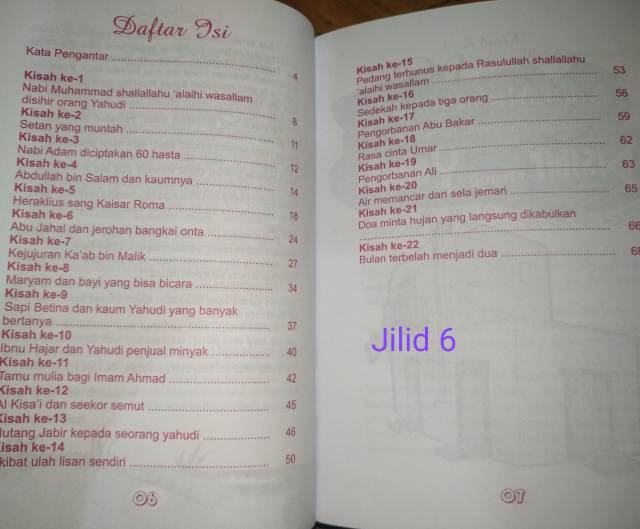 Daftar Isi
Kata Pengantar ........ 4
Kisah ke-1
Nabi Muhammad shallallahu 'alaihi wasallam
disihir orang Yahudi ........ 8
Kisah ke-2
Setan yang muntah ........ 11
Kisah ke-3
Nabi Adam diciptakan 60 hasta ........ 12
Kisah ke-4
Abdullah bin Salam dan kaumnya ........ 14
Kisah ke-5
Heraklius sang Kaisar Roma ........ 18
Kisah ke-6
Abu Jahal dan jerohan bangkai onta ........ 24
Kisah ke-7
Kejujuran Ka'ab bin Malik ........ 27
Kisah ke-8
Maryam dan bayi yang bisa bicara ........ 34
Kisah ke-9
Sapi Betina dan kaum Yahudi yang banyak
bertanya ........ 37
Kisah ke-10
Ibnu Hajar dan Yahudi penjual minyak ........ 40
Kisah ke-11
Tamu mulia bagi Imam Ahmad ........ 42
Kisah ke-12
Al Kisa'i dan seekor semut ........ 45
Kisah ke-13
Hutang Jabir kepada seorang yahudi ........ 46
Kisah ke-14
kibat ulah lisan sendiri ........ 50
06
Kisah ke-15
Pedang terhunus kepada Rasulullah shallallahu
'alaihi wasallam ........ 53
Kisah ke-16
Sedekah kepada tiga orang ........ 56
Kisah ke-17
Pengorbanan Abu Bakar ........ 59
Kisah ke-18
Rasa cinta Umar ........ 62
Kisah ke-19
Pengorbanan Ali ........ 63
Kisah ke-20
Air memancar dari sela jemari ........ 65
Kisah ke-21
Doa minta hujan yang langsung dikabulkan
........ 66
Kisah ke-22
Bulan terbelah menjadi dua ........ 68
Jilid 6
07